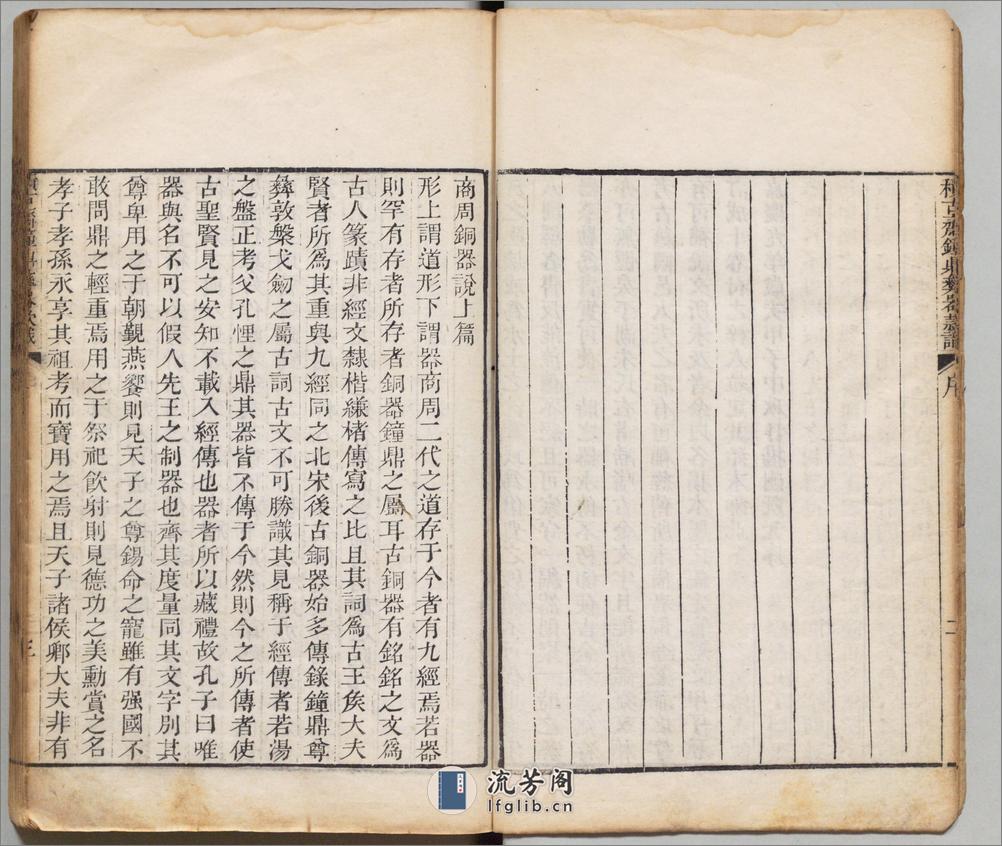 積古齋鐘鼎彝器款識 序 二
商周銅器說上篇
形上謂道形下謂器商周二代之道存于今者有九經焉若器
則罕有存者所存者銅器鐘鼎之屬耳古銅器有銘銘之文爲
古人篆蹟非經文隸楷縑楮傳寫之比且其詞爲古王矦大夫
賢者所爲其重與九經同之北宋後古銅器始多傳錄鐘鼎尊
彝敦槃戈劒之屬古詞古文不可勝識其見稱于經傳者若湯
之盤正考父孔悝之鼎其器皆不傳于今然則今之所傳者使
古聖賢見之安知不載入經傳也器者所以藏禮故孔子曰唯
器與名不可以假人先王之制器也齊其度量同其文字別其
尊卑用之于朝覲燕饗則見天子之尊錫命之寵雖有强國不
敢問鼎之輕重焉用之于祭祀飲射則見德功之美勳賞之名
孝子孝孫永享其祖考而寶用之焉且天子諸侯卿大夫非有
三
流芳阁
lfglib.cn